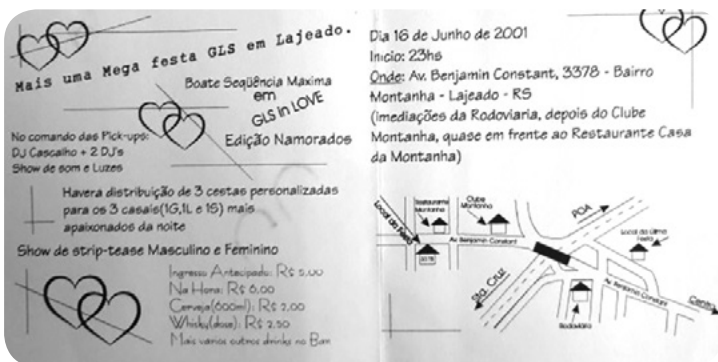 Mais uma Mega festa GLS em Lajeado.
Boate Seqüência Maxima
em
GLS in LOVE
Edição Namorados
No comando das Pick-ups:
DJ Cascalho + 2 DJ's
Show de som e Luzes
Havera distribuição de 3 cestas personalizadas
para os 3 casais(1G,1L e 1S) mais
apaixonados da noite
Show de strip-tease Masculino e Feminino
Ingresso Antecipado: R$ 5,00
Na Hora: R$ 6,00
Cerveja(600ml): R$ 2,00
Whisky(dose): R$ 2,50
Mais varios outros drinks no Bar
Dia 16 de Junho de 2001
Inicio: 23hs
Onde: Av. Benjamin Constant, 3378 - Bairro
Montanha - Lajeado - RS
(imediações da Rodoviaria, depois do Clube
Montanha, quase em frente ao Restaurante Casa
da Montanha)
Local da Festa
Restaurante
Montanha
Clube
Montanha
POA
Local da última
Festa
Av. Benjamin Constant
Sta. Cruz
Av. Benjamin Constant
Centro
Rodoviaria